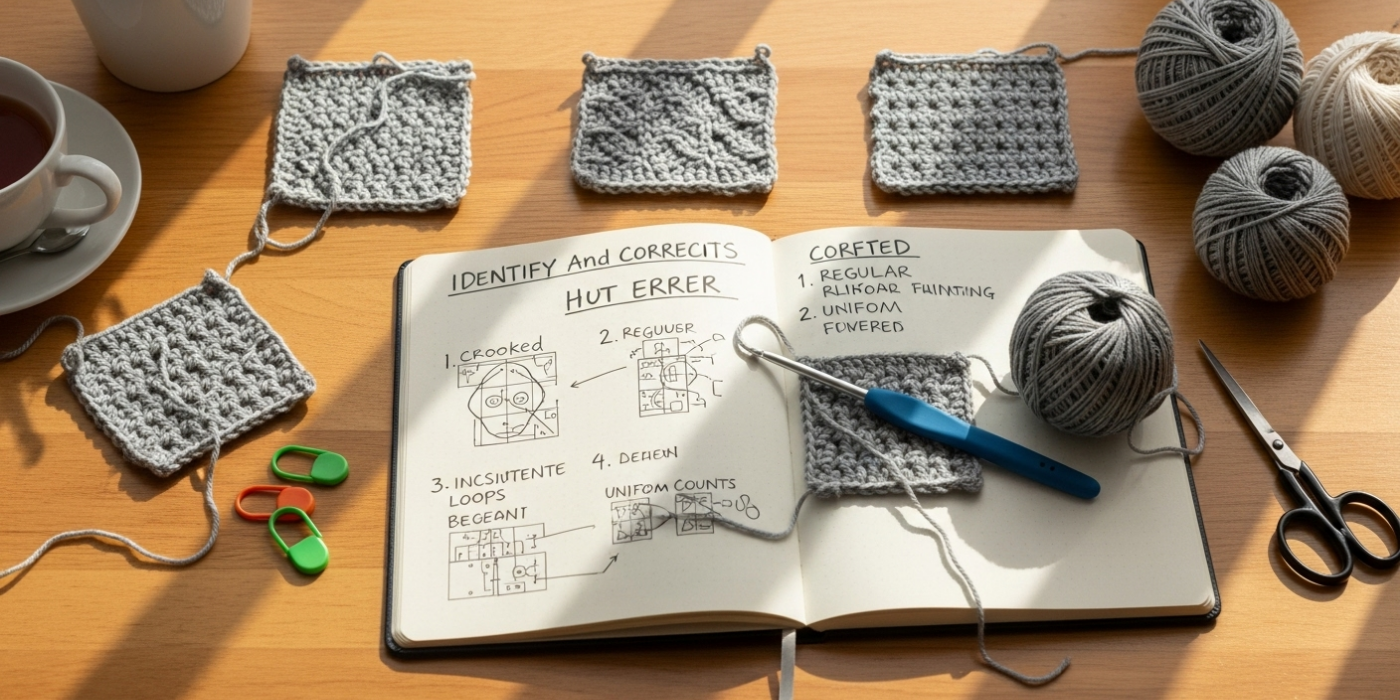 IDENTIFY And CORRECITS
HUT ERRER
1. CROOKED
2. REGUUSR
3. INCSIUTENTE
LOOPS
BEGEANT
4. DEHEIN
UNIFOM COUNTS
CORFTED
1. REGULAR
RLIFOAR FUINTING
2. UNIFOM
FOWERED